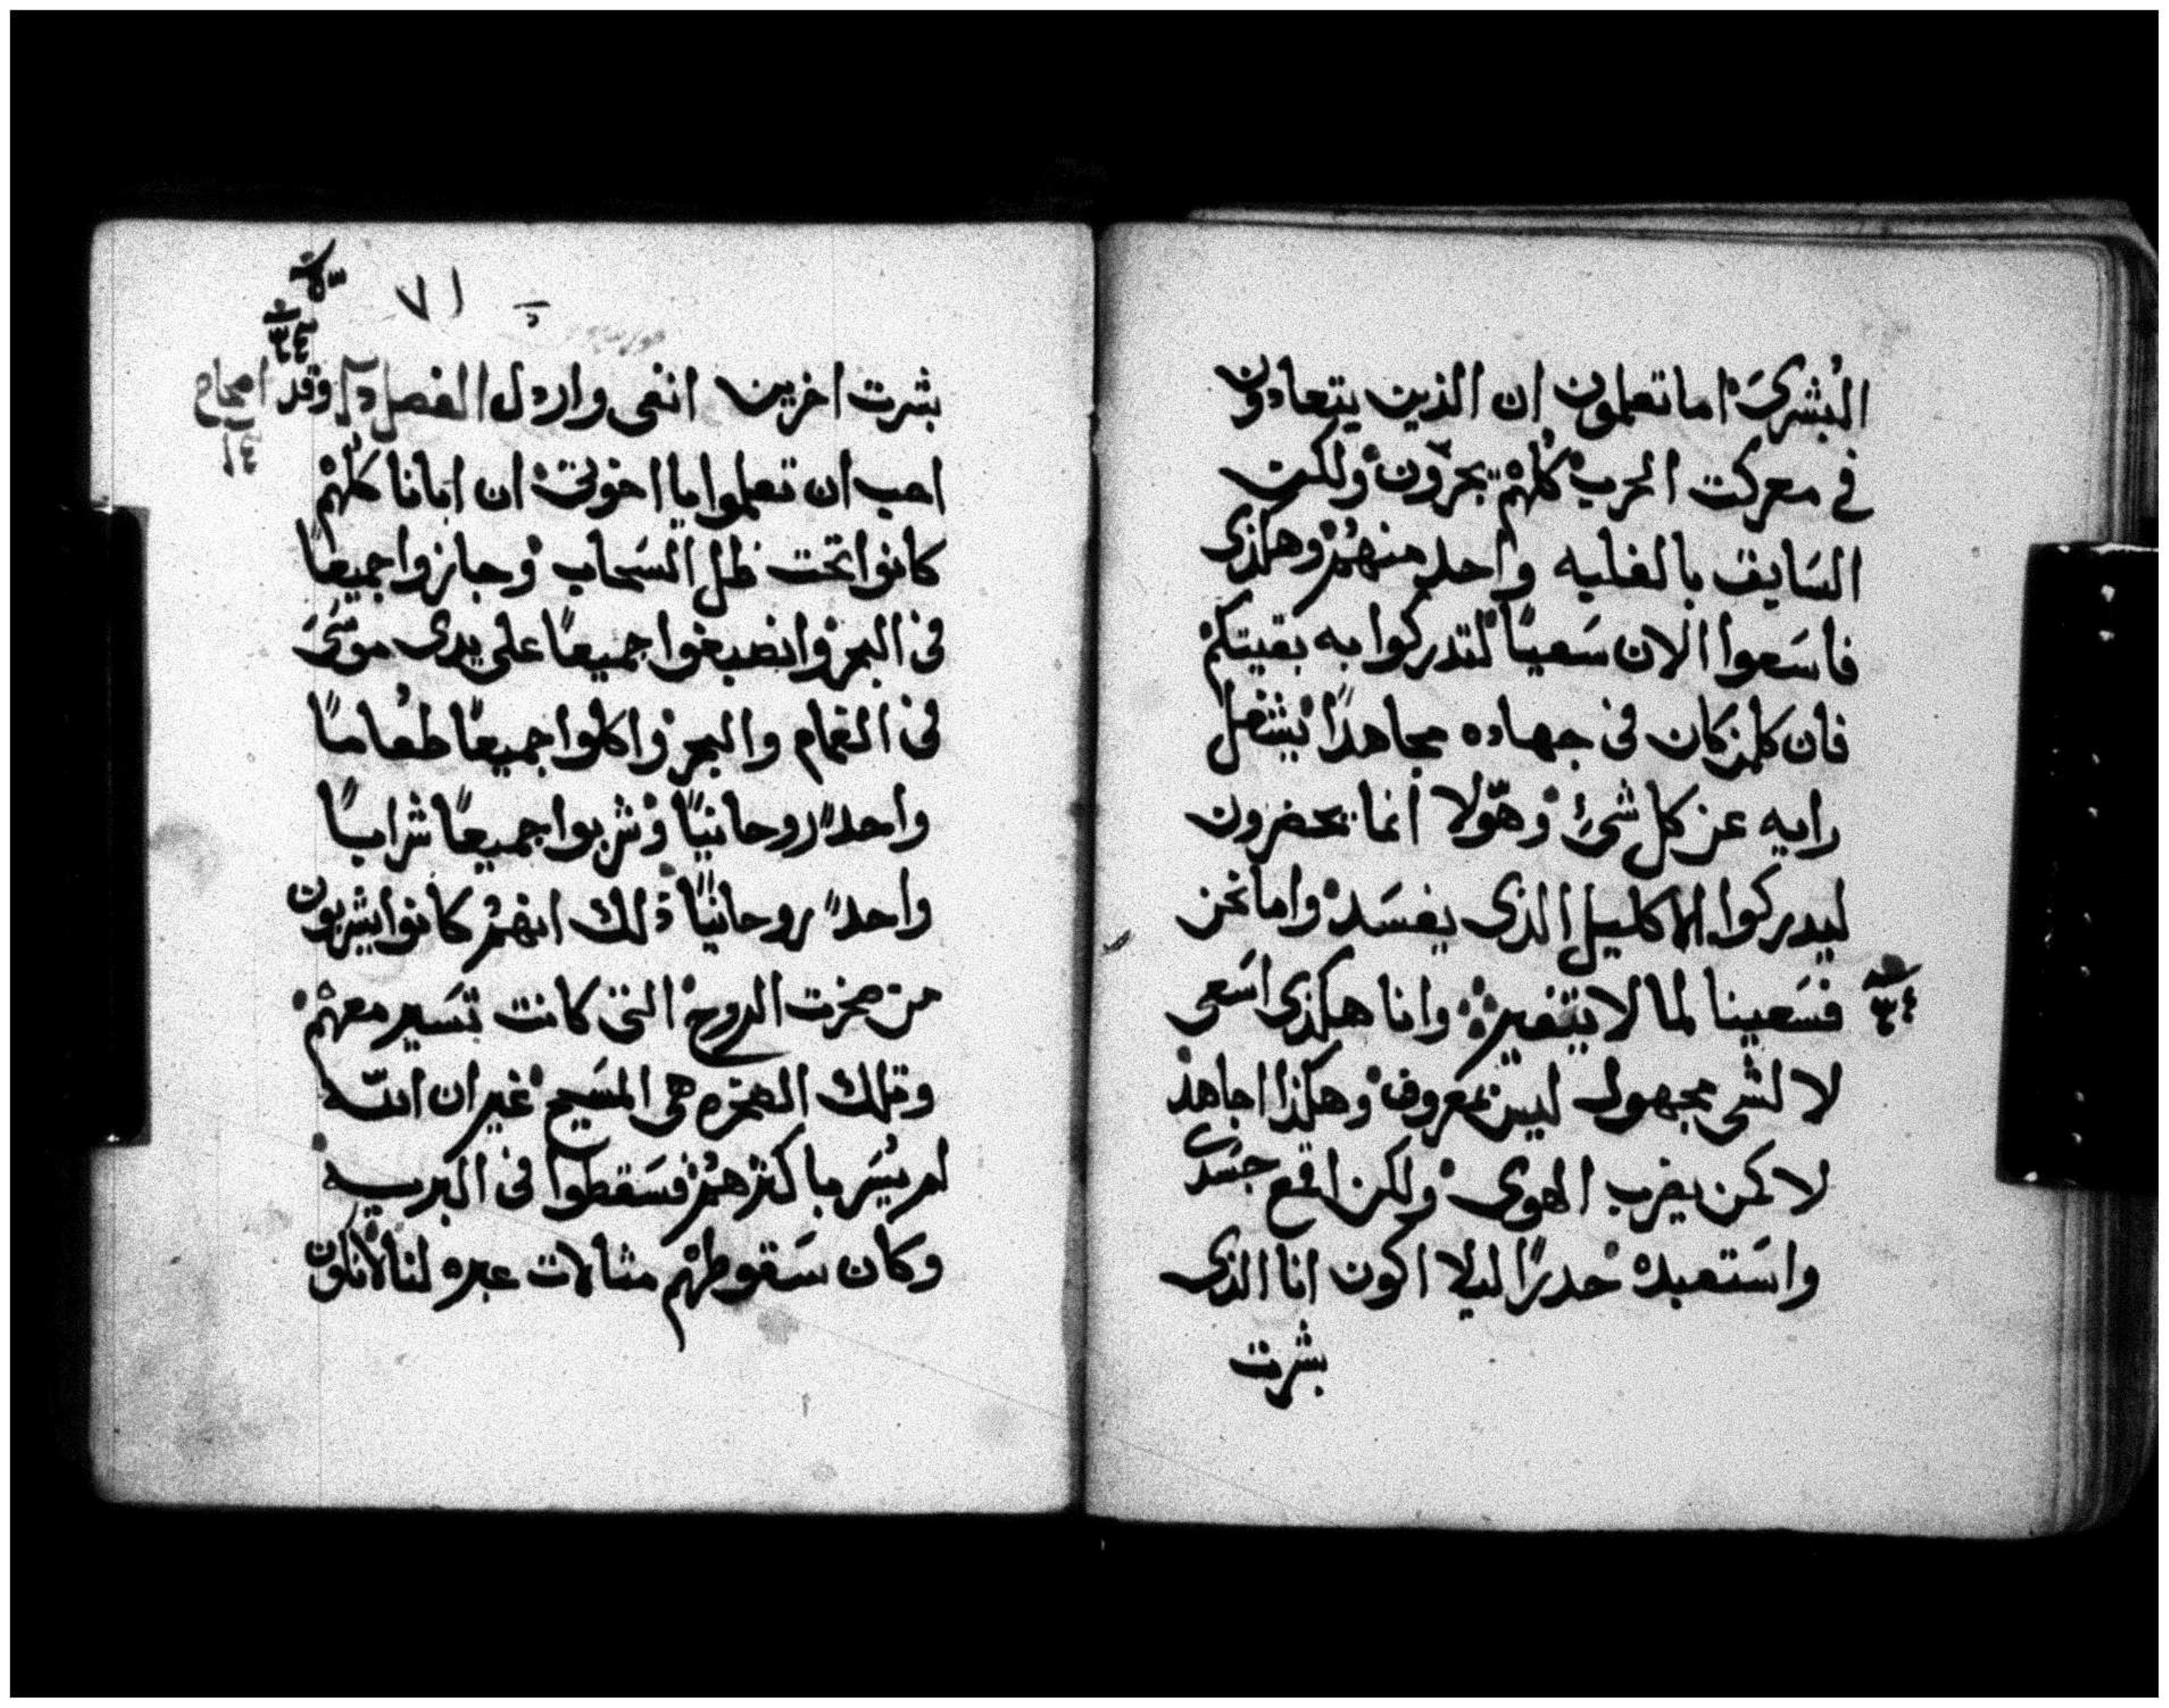 البُشرىَ اما تعلمون ان الذين يتعادون
في معركت الحرب كُلهمْ يجرّون ولكن
السَابق بالغلبه واحد منهمُ وهكذى
فاسَعوا الان سَعيًا لتدركوا به بقيتكم
فان كلمن كان في جهاده مجاهدًا يشغل
رايه عن كل شئ وهوّلا انما يحضرون
ليدركوا الاكليل الذى يفسَد واما نحن
فسَعينا لما لا يتغير وانا هكذى اسَعى
لا لشى مجهول ليسَ بمعروف وهكذا اجاهد
لا كمن يضرب الهوى ولكن اقمع جسَدى
واسَتعبده حدرًا ليلا اكون انا الذى
بشرت
٧١
بشرت اخرين انفى واردل الفصل وقد
احب ان تعلموا يا اخوتى ان ابانا كلُهمْ
كانوا تحت ظل السَحاب وجازوا جميعًا
فى البحر وانصبغوا جميعًا على يدى موسَىَ
فى الغمام والبحر واكلوا جميعًا طعُامًا
واحدًا روحانيًا وشربوا جميعًا شرابًا
واحدًا روحانيًا ذلك انهمُ كانوا يشربون
من صخرت الروح التى كانت تسَير معهمْ
وتلك الصخره هى المسَيح غير ان اللّه
لم يُسَر باكثرهمُ فسَقطوا فى البريه
وكان سَقوطهمْ مثالات عبره لنا لانكون